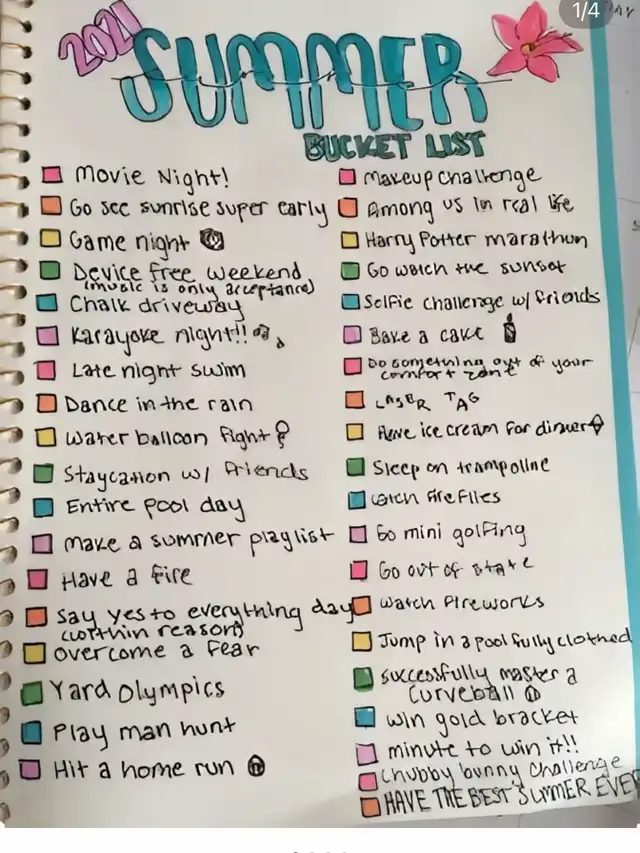 1/4
2021
SUMMER
BUCKET LIST
Movie Night!
Go see sunrise super early
Game night
Device free weekend
(music is only acceptance)
Chalk driveway
Karayoke night!!
Late night swim
Dance in the rain
Water balloon fight
Staycation w/ friends
Entire pool day
make a summer playlist
Have a fire
Say yes to everything day
(worthin reason)
overcome a fear
Yard Olympics
Play man hunt
Hit a home run
Makeup challenge
Among us in real life
Harry Potter marathon
Go watch the sunset
Selfie challenge w/ friends
Bake a cake
Do something out of your
comfort zone
LASER TAG
Have ice cream for dinner
Sleep on trampoline
catch fireflies
Go mini golfing
Go out of state
Watch fireworks
Jump in a pool fully clothed
successfully master a
curveball
win gold bracket
minute to win it!!
Chubby bunny challenge
HAVE THE BEST SUMMER EVER